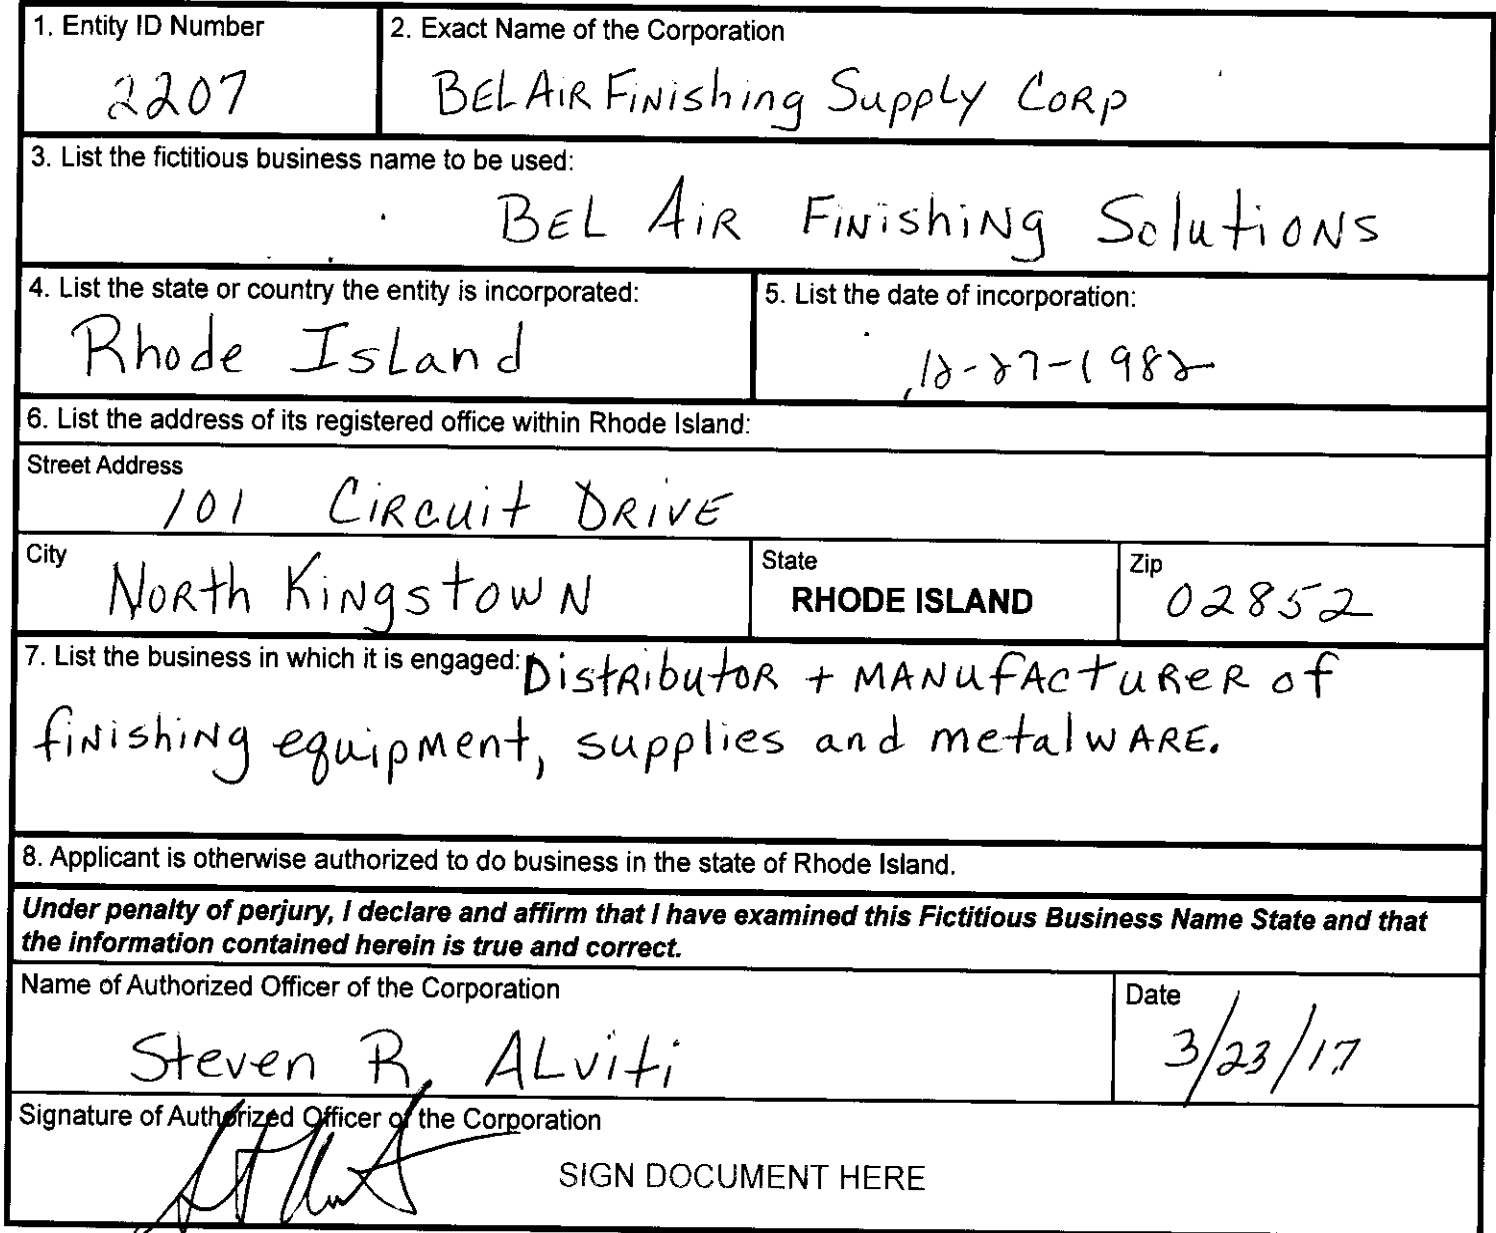 1. Entity ID Number
2207
2. Exact Name of the Corporation
BEL AIR Finishing Supply Corp
3. List the fictitious business name to be used:
BEL AIR Finishing Solutions
4. List the state or country the entity is incorporated:
Rhode Island
5. List the date of incorporation:
12-27-1982
6. List the address of its registered office within Rhode Island:
Street Address
101 Circuit Drive
City
North Kingstown
State
RHODE ISLAND
Zip
02852
7. List the business in which it is engaged: Distributor + Manufacturer of
finishing equipment, supplies and metalware.
8. Applicant is otherwise authorized to do business in the state of Rhode Island.
Under penalty of perjury, I declare and affirm that I have examined this Fictitious Business Name State and that
the information contained herein is true and correct.
Name of Authorized Officer of the Corporation
Steven R. Alviti
Date
3/23/17
Signature of Authorized Officer of the Corporation
SIGN DOCUMENT HERE